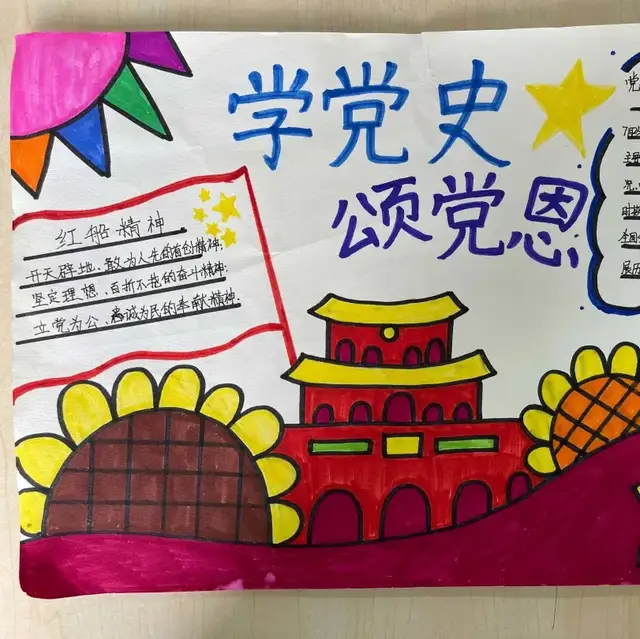 学党史
颂党恩
红船精神
开天辟地、敢为人先的首创精神;
坚定理想、百折不挠的奋斗精神;
立党为公、忠诚为民的奉献精神.
党